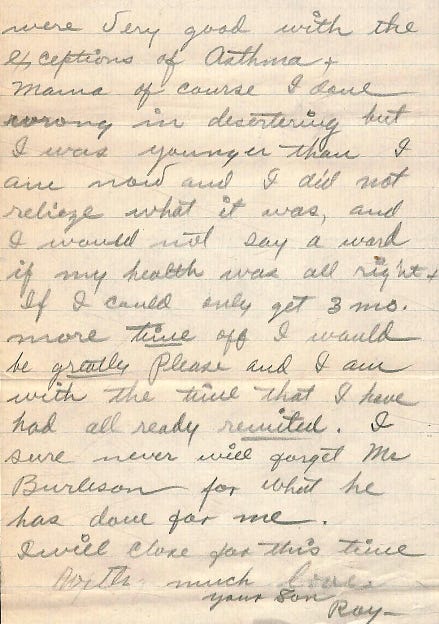 were Very good with the
exceptions of Asthma +
Mama of course I done
wrong in desertering but
I was younger than I
am now and I did not
relieze what it was, and
I would not say a word
if my health was all right +
If I could only get 3 mo.
more time off I would
be greatly Please and I am
with the time that I have
had all ready remited. I
sure never will forget Mr
Burleson for what he
has done for me.
I will close for this time
With much love.
your Son
Roy-